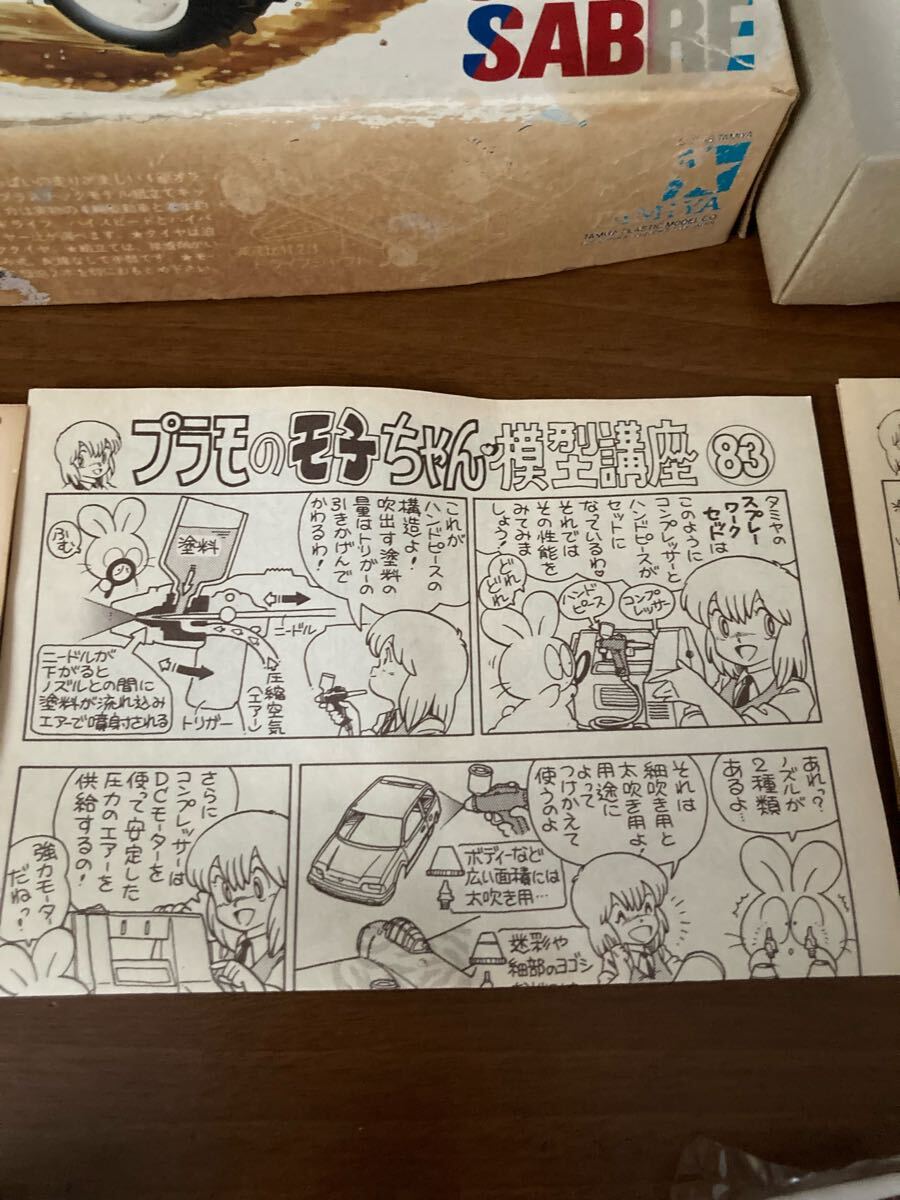 SABRE
TAMIYA
TAMIYA PLASTIC MODEL CO.
プラモのモ子ちゃん 模型講座 83
タミヤの
スプレー
ワーク
セットは
このように
コンプレッサーと
ハンドピースが
セットに
なっているわ♥
それでは
その性能を
みてみま
しょう?
どれ
どれ
ハンド
ピース
コンプ
レッサー
これが
ハンドピースの
構造よ!
吹出す塗料の
量はトリガーの
引きかげんで
かわるわ!
ふむ
塗料
ニードル
ニードルが
下がると
ノズルとの間に
塗料が流れ込み
エアーで噴射される
トリガー
圧縮空気
(エアー)
あれっ?
ノズルが
2種類
あるよ…
それは
細吹き用と
太吹き用よ!
用途に
よって
つけかえて
使うのよ
ボディーなど
広い面積には
太吹き用…
迷彩や
細部のヨゴシ
さらに
コンプレッサーは
DCモーターを
使って安定した
圧力のエアーを
供給するの!
強力モーター
だねっ?